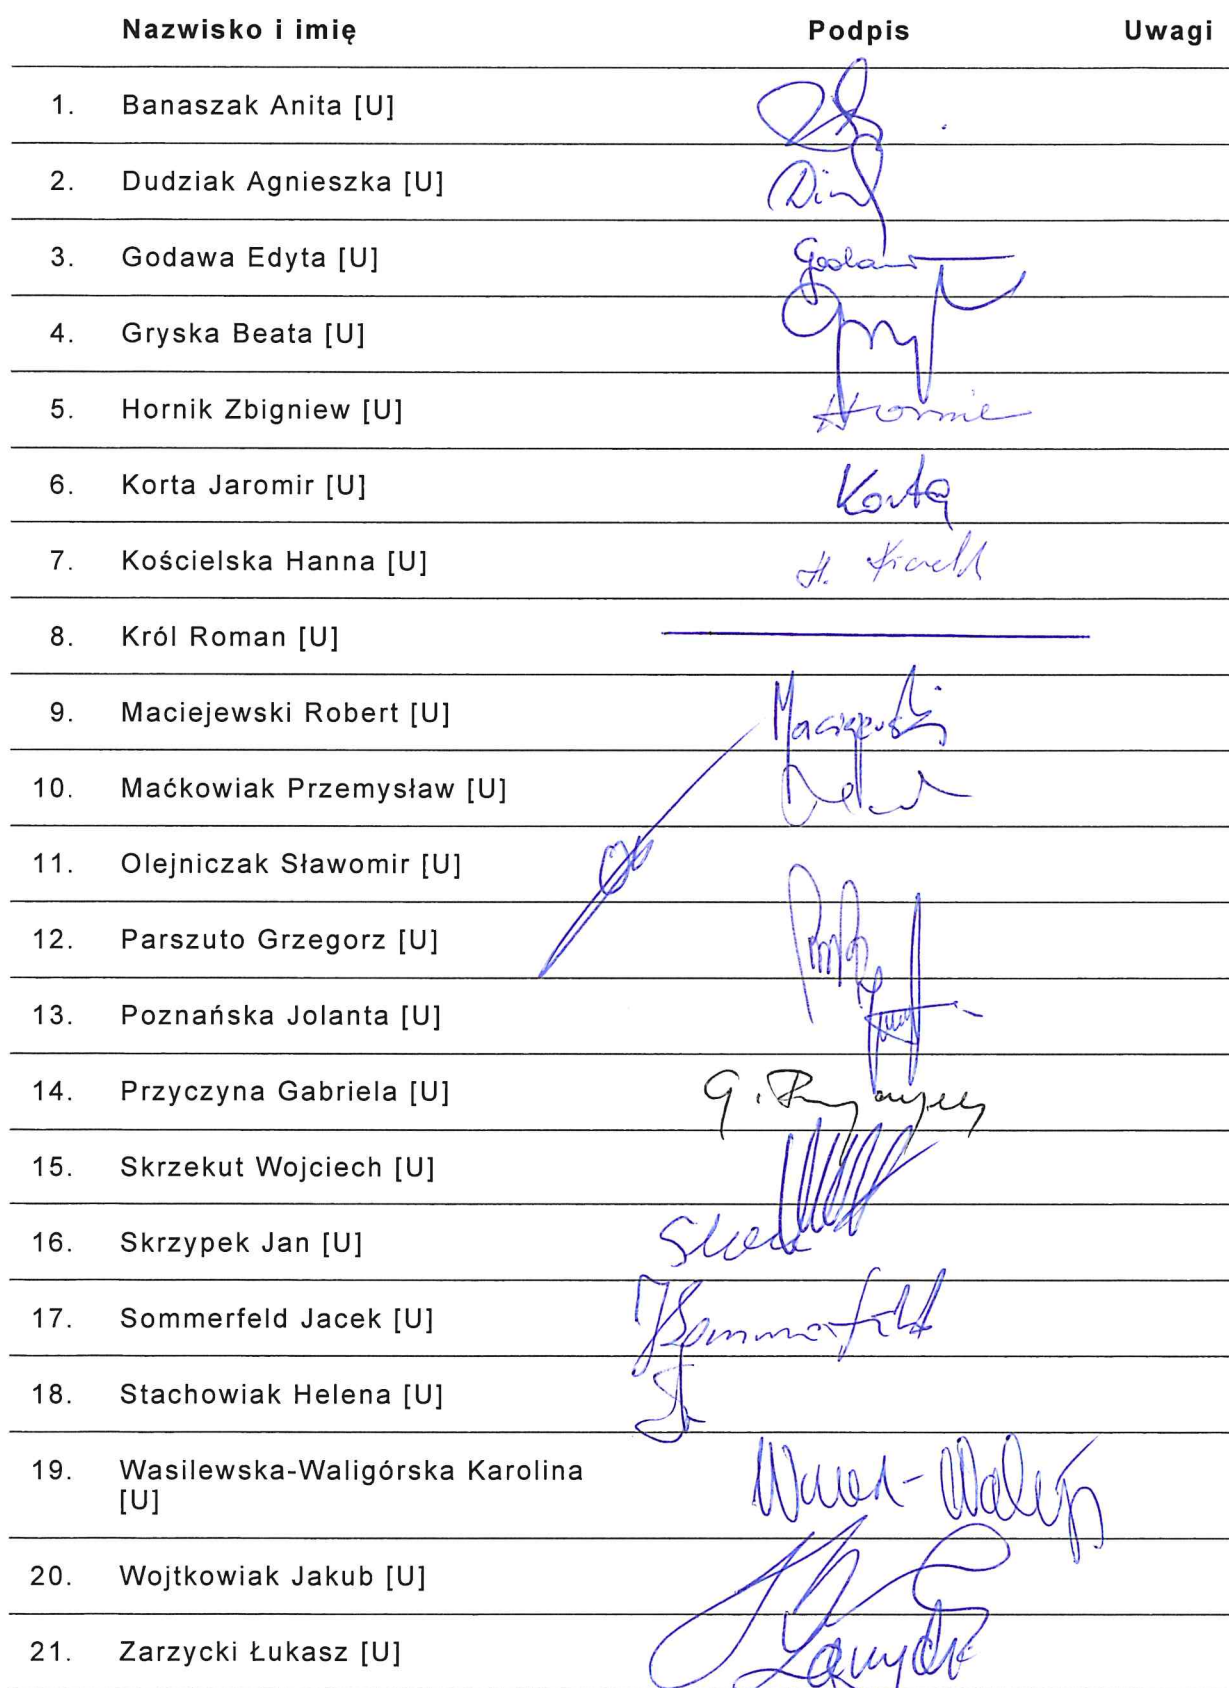 Nazwisko i imię Podpis Uwagi
1. Banaszak Anita [U]
2. Dudziak Agnieszka [U]
3. Godawa Edyta [U]
4. Gryska Beata [U]
5. Hornik Zbigniew [U]
6. Korta Jaromir [U] Korta
7. Kościelska Hanna [U] H.
8. Król Roman [U]
9. Maciejewski Robert [U] Maciejewski
10. Maćkowiak Przemysław [U]
11. Olejniczak Sławomir [U]
12. Parszuto Grzegorz [U]
13. Poznańska Jolanta [U]
14. Przyczyna Gabriela [U] G.
15. Skrzekut Wojciech [U]
16. Skrzypek Jan [U]
17. Sommerfeld Jacek [U] JSommerfeld
18. Stachowiak Helena [U]
19. Wasilewska-Waligórska Karolina
[U]
20. Wojtkowiak Jakub [U]
21. Zarzycki Łukasz [U]